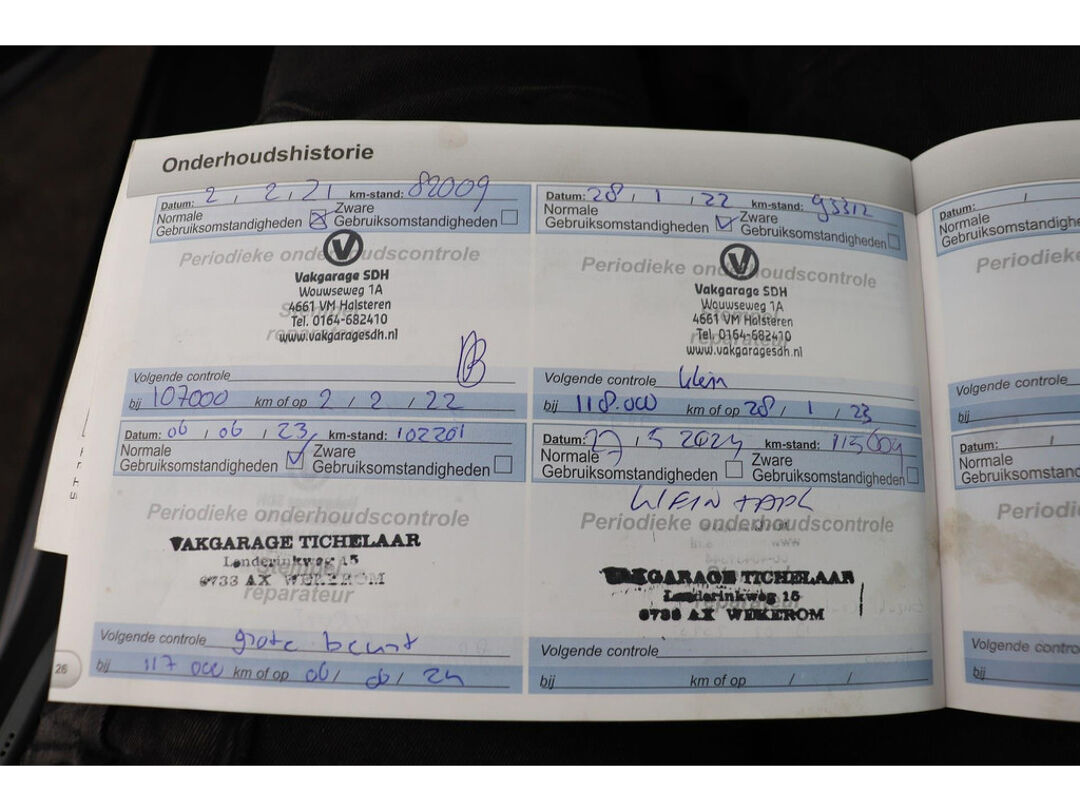 Onderhoudshistorie
Datum: 2 , 2 , 21 km-stand: 82009
Normale Gebruiksomstandigheden ☒ Zware Gebruiksomstandigheden ☐
Periodieke onderhoudscontrole
V
Vakgarage SDH
Wouwseweg 1A
4661 VM Halsteren
Tel. 0164-682410
reparateur
www.vakgaragesdh.nl
Volgende controle
bij 107000 km of op 2 / 2 / 22
Datum: 28 , 1 , 22 km-stand: 93312
Normale Gebruiksomstandigheden ☑ Zware Gebruiksomstandigheden ☐
Periodieke onderhoudscontrole
V
Vakgarage SDH
Wouwseweg 1A
4661 VM Halsteren
Tel. 0164-682410
reparateur
www.vakgaragesdh.nl
Volgende controle klein
bij 118.000 km of op 28 / 1 / 23
Datum: 06 , 06 , 23 km-stand: 102201
Normale Gebruiksomstandigheden ☑ Zware Gebruiksomstandigheden ☐
Periodieke onderhoudscontrole
VAKGARAGE TICHELAAR
Lenderinkweg 15
Stempel
6733 AX WEKEROM
reparateur
Volgende controle grote beurt
bij 117 000 km of op 06 / 06 / 24
Datum: 27 , 5 2024 km-stand: 115009
Normale Gebruiksomstandigheden ☐ Zware Gebruiksomstandigheden ☐
KLEIN + APK
Periodieke onderhoudscontrole
VAKGARAGE TICHELAAR
Lenderinkweg 15
reparateur
6733 AX WEKEROM
Volgende controle
bij km of op / /
26
Datum: /
Normale
Gebruiksomstandighe
Periodieke
Volgende controle
bij
Datum: /
Normale
Gebruiksomstandighe
Periodi
Volgende contro
bij